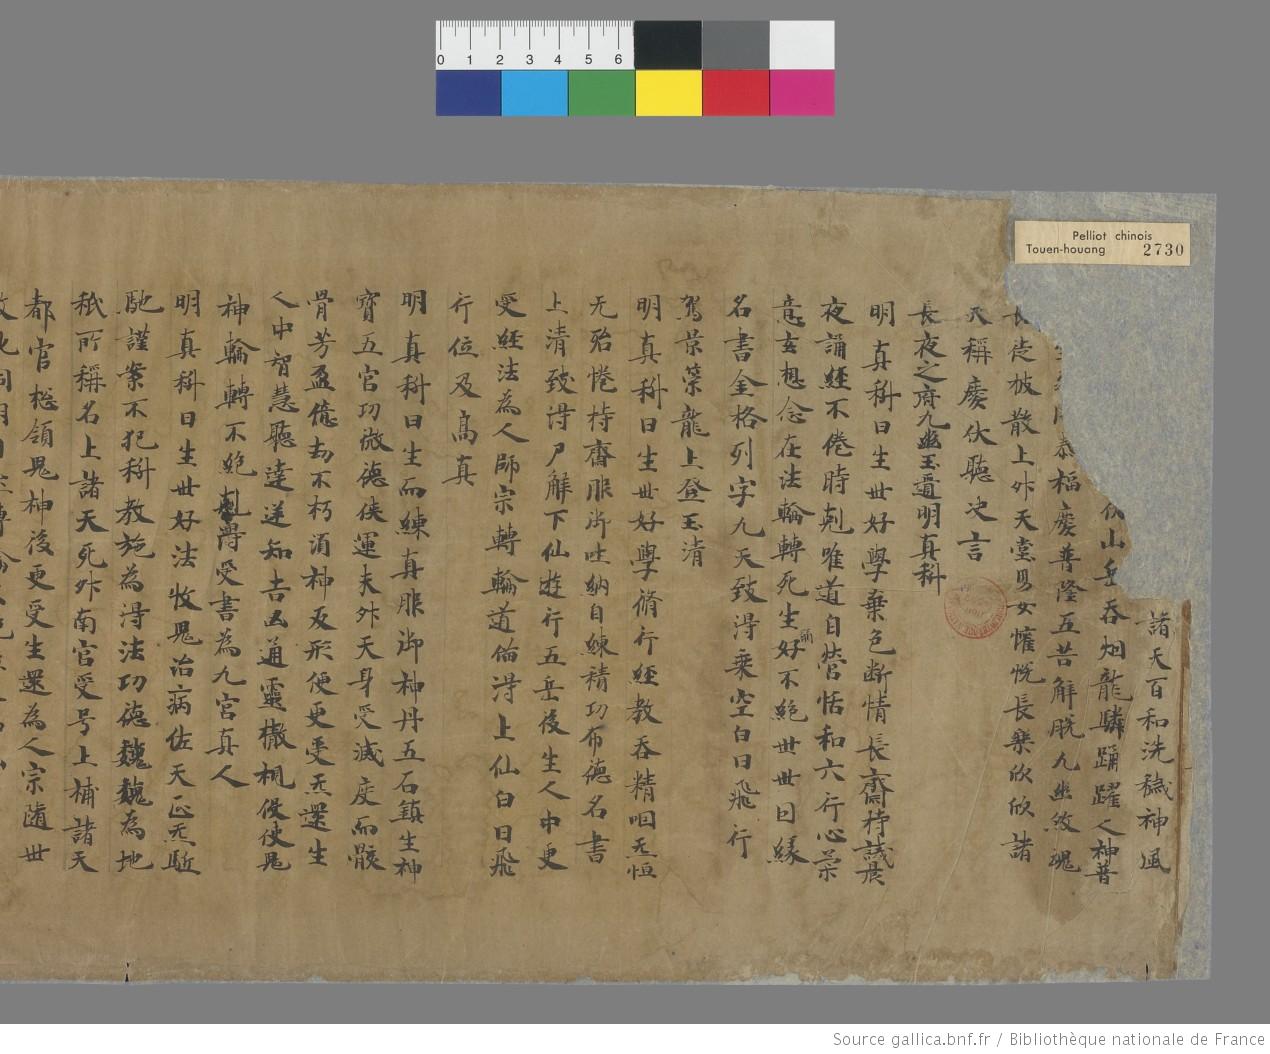 Pelliot chinois
Touen-houang 2730
0 1 2 3 4 5 6
諸天百和洗穢神風
山岳吞烟龍驎踊躍人神普
泰福慶普隆五苦解脱九幽放魂
長徒披散上升天堂男女慷慨長樂欣欣諸
天稱慶伏聽决言
長夜之府九幽玉遺明真科
明真科曰生世好學棄色斷情長齋持誡晨
夜誦經不倦時剋唯道自營恬和六行心榮
意玄想念在法輪轉死生好不絶世世因緣
名書金格列字九天致得乗空白日飛行
駕景策龍上登玉清
明真科曰生世好學脩行經教吞精咽炁恒
无殆惓持齋服御吐納自練精功布德名書
上清致得尸解下仙遊行五岳後生人中更
受經法為人師宗轉輪道備得上仙白日飛
行位及高真
明真科曰生而練真服御神丹五石鎮生神
寶五官功微德侠運未升天身受滅度而骸
骨芳盈億劫不朽須神反形便更受炁還生
人中智慧聰達逆知吉凶通靈徹視役使鬼
神輪轉不絶剋得受書為九宮真人
明真科曰生世好法收鬼治病佐天正炁駈
馳謹案不犯科教施為得法功德巍巍為地
祇所稱名上諸天死升南宮受号上補諸天
都官総領鬼神後更受生還為人宗隨世
Source gallica.bnf.fr / Bibliothèque nationale de France